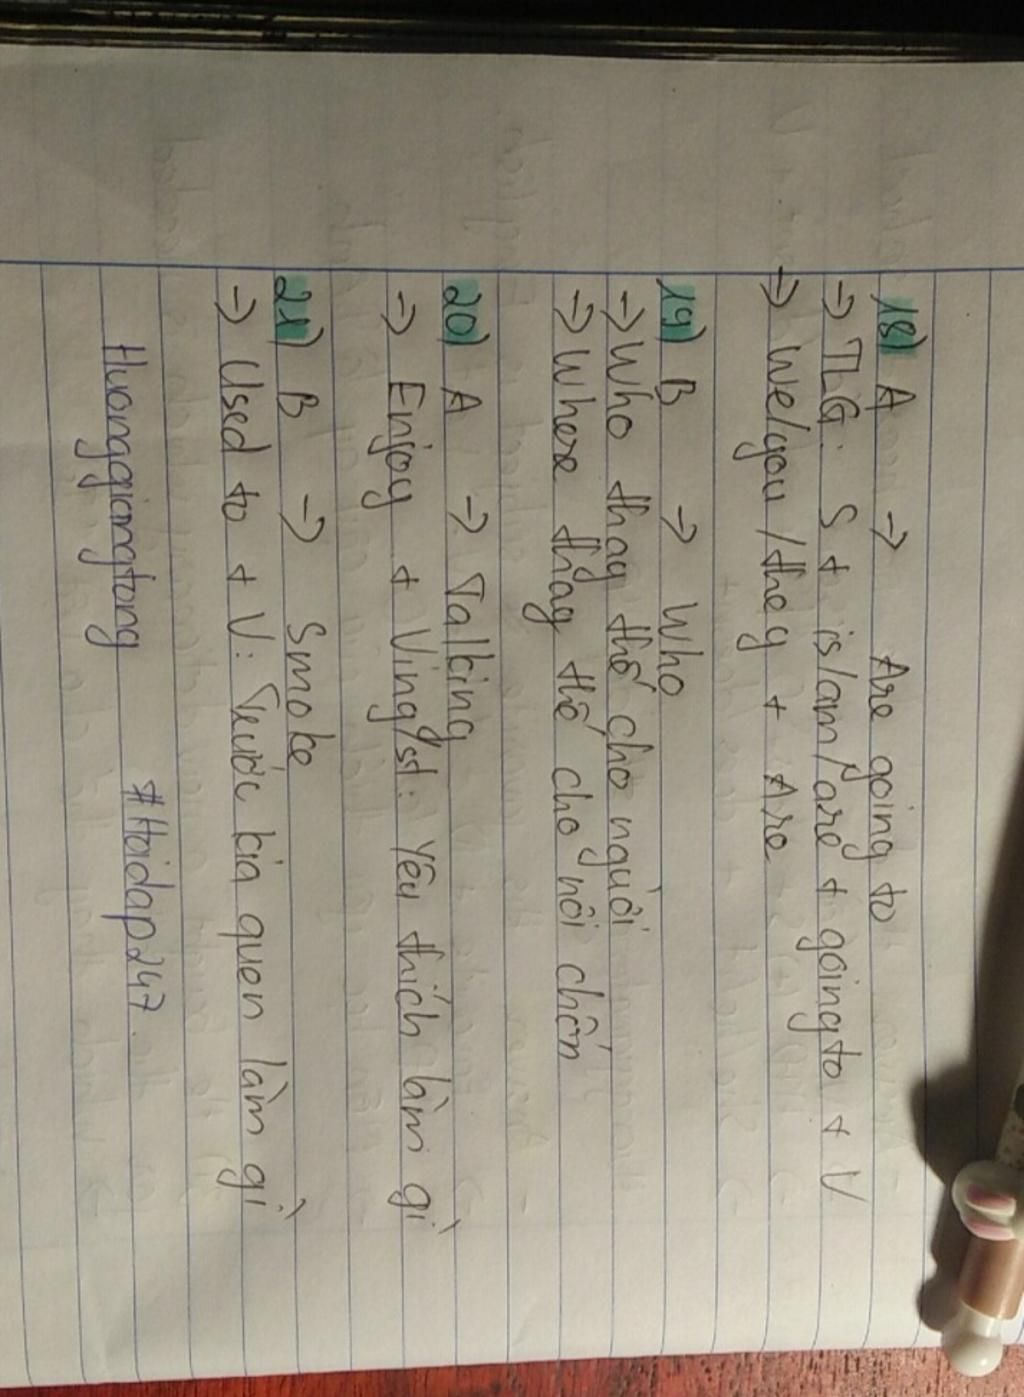 18) A → Are going to
→ TLG: S + is/am/are + going to + V
→ We/you/they + Are
19) B → Who
→ Who thay thế cho người
→ Where thay thế cho nơi chốn
20) A → Talking
→ Enjoy + Ving/st: Yêu thích làm gì
21) B → Smoke
→ Used to + V: Trước kia quen làm gì
Huonggiangtong #Hoidap247.